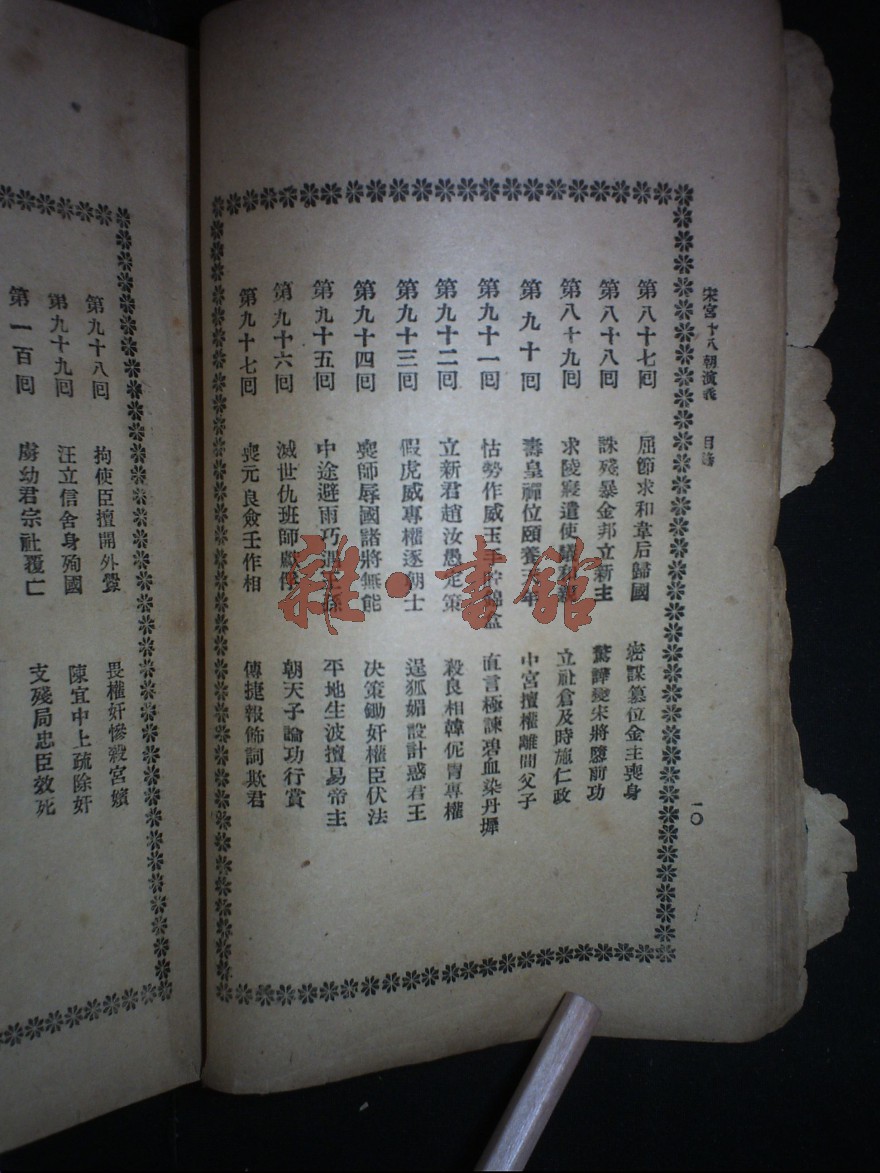 宋宮十八朝演義　目錄
一〇
第八十七囘　屈節求和韋后歸國　密謀篡位金主喪身
第八十八囘　誅殘暴金邦立新主　驚譁變宋將隳前功
第八十九囘　求陵寢遣使議和親　立社倉及時施仁政
第九十囘　壽皇禪位頤養天年　中宮擅權離間父子
第九十一囘　怙勢作威玉手貯錦盒　直言極諫碧血染丹墀
第九十二囘　立新君趙汝愚定策　殺良相韓侂胄專權
第九十三囘　假虎威專權逐朝士　逞狐媚設計惑君王
第九十四囘　喪師辱國諸將無能　決策鋤奸權臣伏法
第九十五囘　中途避雨巧遇王孫　平地生波擅易帝主
第九十六囘　滅世仇班師獻俘　朝天子論功行賞
第九十七囘　喪元良僉壬作相　傳捷報飾詞欺君
第九十八囘　拘使臣擅開外釁　畏權奸慘殺宮嬪
第九十九囘　汪立信舍身殉國　陳宜中上疏除奸
第一百囘　虜幼君宗社覆亡　支殘局忠臣效死
雜·書館